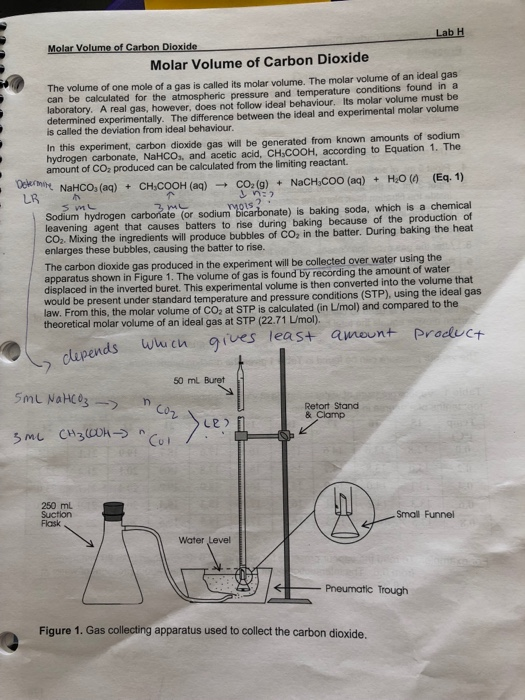 Lab H
Molar Volume of Carbon Dioxide
Molar Volume of Carbon Dioxide
The volume of one mole of a gas is called its molar volume. The molar volume of an ideal gas
can be calculated for the atmospheric pressure and temperature conditions found in a
laboratory. A real gas, however, does not follow ideal behaviour. Its molar volume must be
determined experimentally. The difference between the ideal and experimental molar volume
is called the deviation from ideal behaviour.
In this experiment, carbon dioxide gas will be generated from known amounts of sodium
hydrogen carbonate, NaHCO₃, and acetic acid, CH₃COOH, according to Equation 1. The
amount of CO₂ produced can be calculated from the limiting reactant.
Determine NaHCO₃ (aq) + CH₃COOH (aq) → CO₂ (g) + NaCH₃COO (aq) + H₂O (l) (Eq. 1)
LR ↑ ↑ ↓ n=?
5 mL 3 mL mols?
Sodium hydrogen carbonate (or sodium bicarbonate) is baking soda, which is a chemical
leavening agent that causes batters to rise during baking because of the production of
CO₂. Mixing the ingredients will produce bubbles of CO₂ in the batter. During baking the heat
enlarges these bubbles, causing the batter to rise.
The carbon dioxide gas produced in the experiment will be collected over water using the
apparatus shown in Figure 1. The volume of gas is found by recording the amount of water
displaced in the inverted buret. This experimental volume is then converted into the volume that
would be present under standard temperature and pressure conditions (STP), using the ideal gas
law. From this, the molar volume of CO₂ at STP is calculated (in L/mol) and compared to the
theoretical molar volume of an ideal gas at STP (22.71 L/mol).
depends which gives least amount product
50 mL Buret
5mL NaHCO₃ → n CO₂
LR?
3 mL CH₃COOH → n
Retort Stand
& Clamp
250 mL
Suction
Flask
Small Funnel
Water Level
Pneumatic Trough
Figure 1. Gas collecting apparatus used to collect the carbon dioxide.